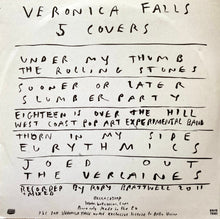 VERONICA FALLS
5 COVERS
UNDER MY THUMB
THE ROLLING STONES
SOONER OR LATER
SLUMBER PARTY
EIGHTEEN IS OVER THE HILL
WEST COAST POP ART EXPERIMENTAL BAND
THORN IN MY SIDE
EURYTHMICS
JOED OUT
THE VERLAINES
RECORDED BY RORY BRATTWELL 2011
+MIXED